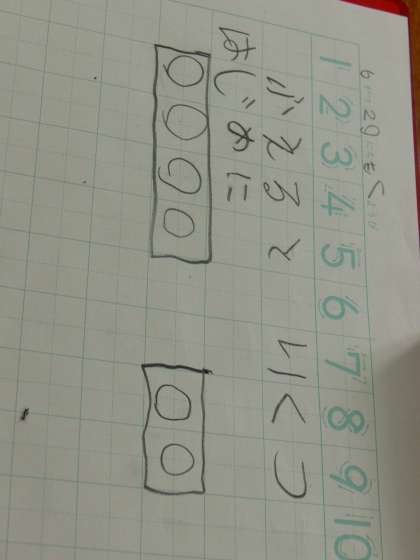 6 29 もく
1 2 3 4 5 6 7 8 9 10
ふえると いくつ
はじめに